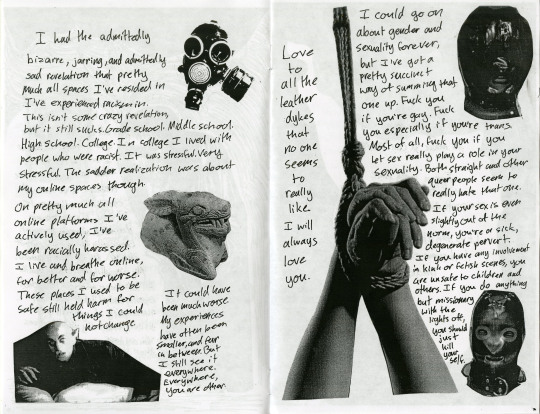 I had the admittedly
bizarre, jarring, and admittedly
sad revelation that pretty
much all spaces I've resided in
I've experienced racism in.
This isn't some crazy revelation,
but it still sucks. Grade school. Middle school.
High school. College. In college I lived with
people who were racist. It was stressful. Very
stressful. The sadder realization was about
my online spaces though.
On pretty much all
online platforms I've
actively used, I've
been racially harassed.
I live and breathe online,
for better and for worse.
These places I used to be
safe still held harm for
things I could
not change.
It could have
been much worse
My experiences
have often been
smaller, and few
in between. But
I still see it
everywhere.
Everywhere,
you are other.
Love
to
all the
leather
dykes
that
no one
seems
to
really
like.
I will
always
love
you.
I could go on
about gender and
sexuality forever,
but I've got a
pretty succinct
way of summing that
one up. Fuck you
if you're gay. Fuck
you especially if you're trans.
Most of all, fuck you if you
let sex really play a role in your
sexuality. Both straight and other
queer people seem to
really hate that one.
If your sex is even
slightly out of the
norm, you're a sick,
degenerate pervert.
If you have any involvement
in kink or fetish scenes, you
are unsafe to children and
others. If you do anything
but missionary
with the
lights off,
you should
just
kill
yourself.